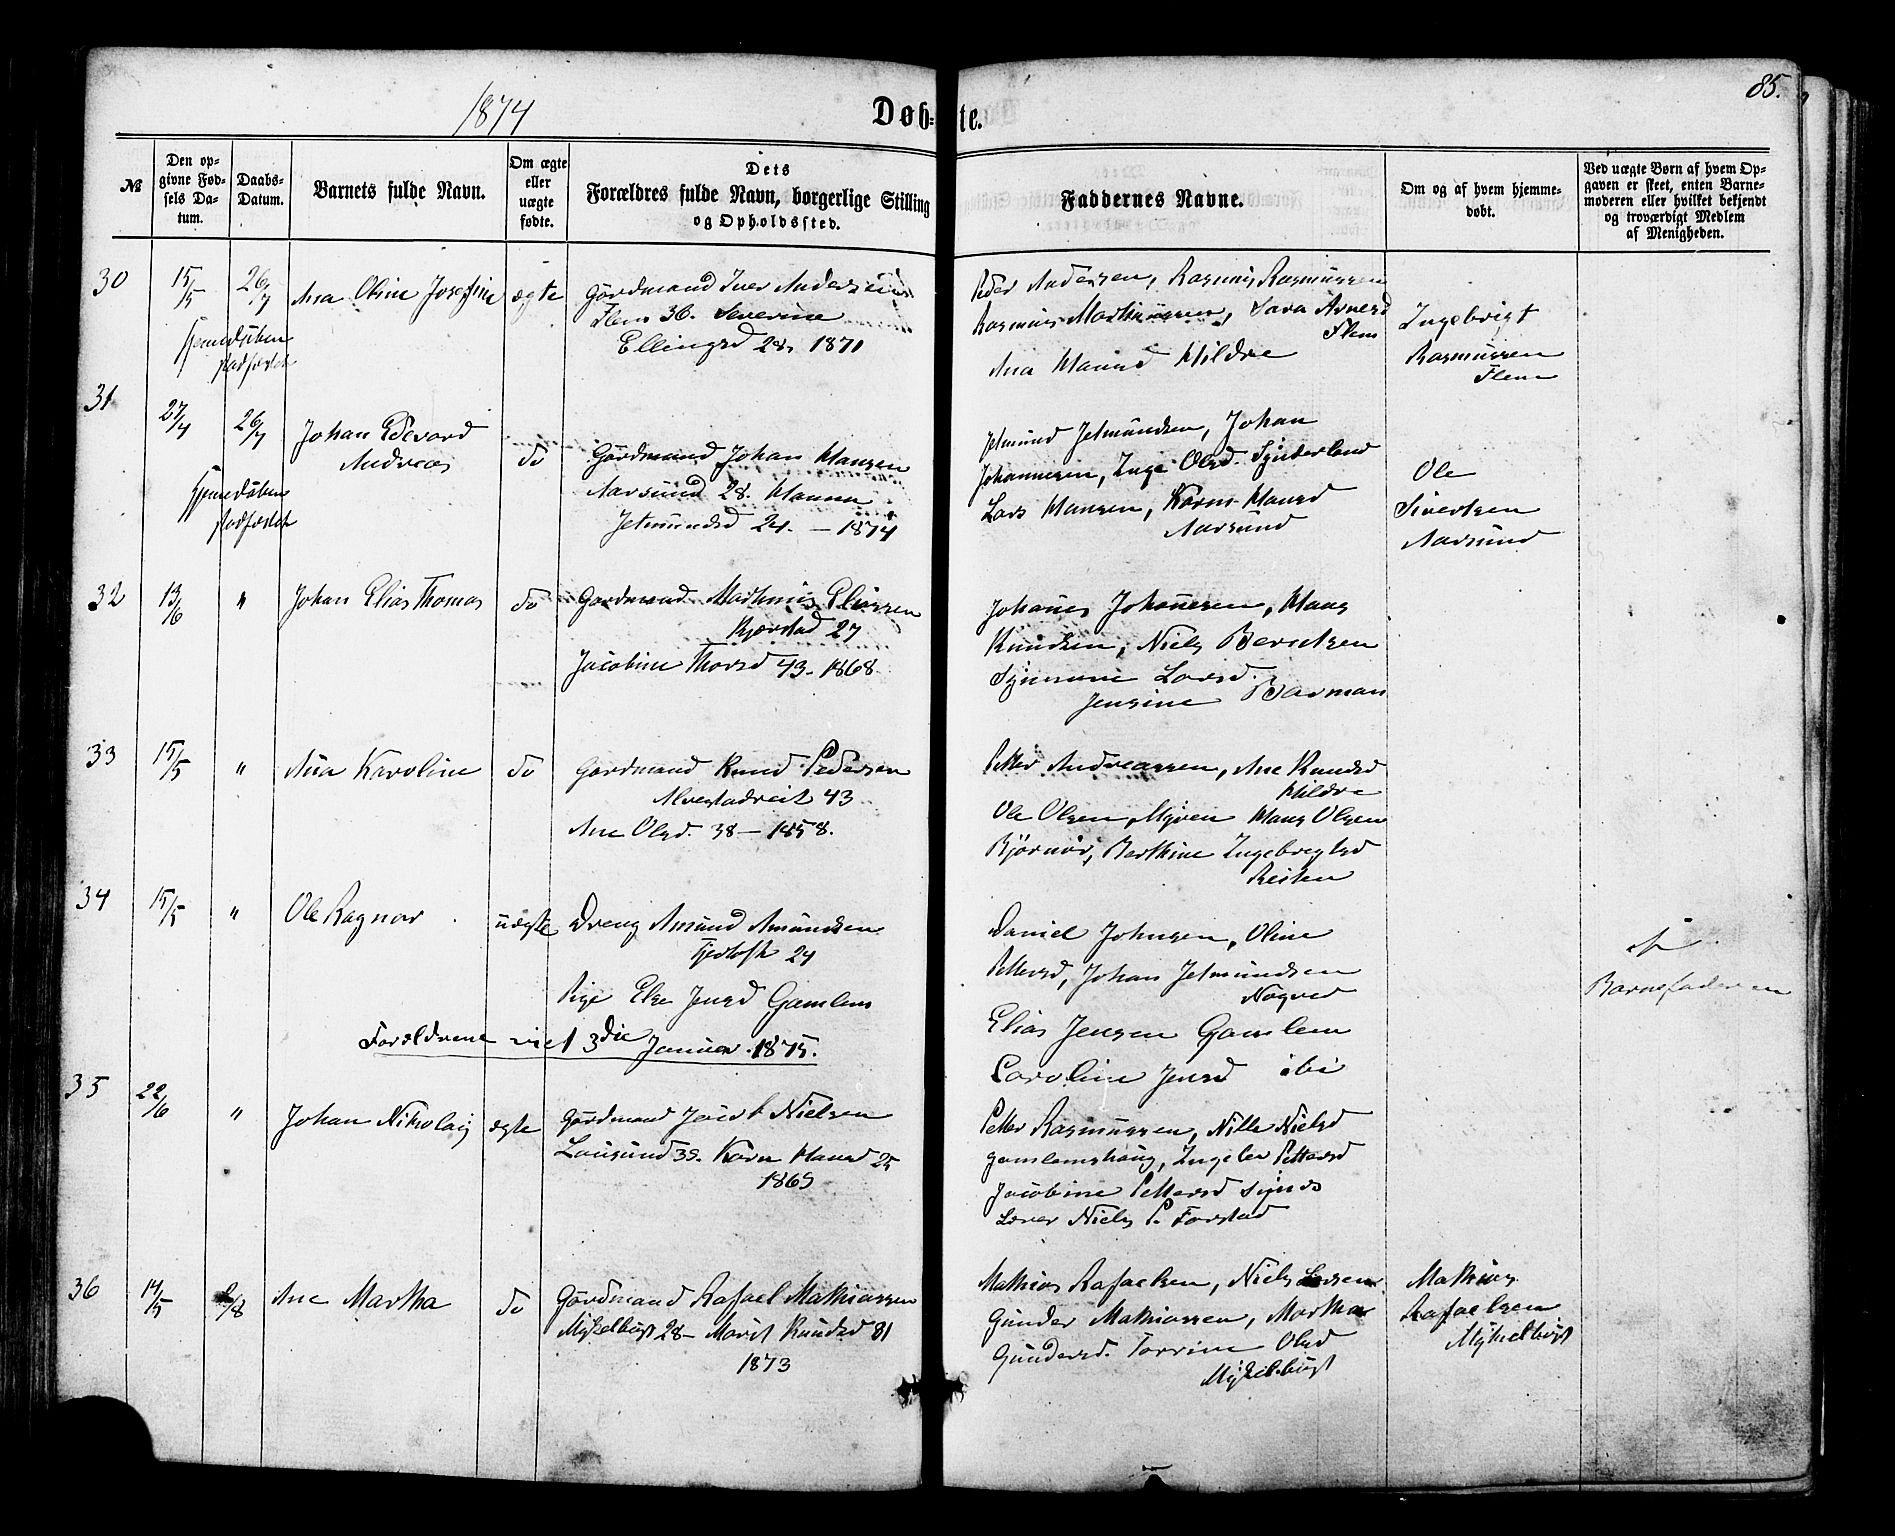 1874
Døbte.
85.
№
Den opgivne Fødsels Datum.
Daabs-Datum.
Barnets fulde Navn.
Om ægte eller uægte fødte.
Dets Forældres fulde Navn, borgerlige Stilling og Opholdssted.
Faddernes Navne.
Om og af hvem hjemmedøbt.
Ved uægte Børn af hvem Opgaven er skeet, enten Barnemoderen eller hvilket bekjendt og troværdigt Medlem af Menigheden.
30
15/5
26/7
Ana Oline Josefine
ægte
Gårdmand Iver Andersen
Flem 36. Severine
Ellingsd 28, 1871
Peder Andersen, Rasmus Rasmussen
Rasmus Martinussen, Sara Arnesd
Flem
Ana Hansd Hildre
Ingebrigt
Rasmussen
Flem
hjemedøben
stadfæstet
31
27/4
26/7
Johan Edevard
Andreas
do
Gårdmand Johan Hansen
Aarsund 28. Hanna
Jetmundsd 24. – 1874
Jetmund Jetmundsen, Johan
Johannesen, Inge Olsd. Synderland
Lars Hansen, Karen Hansd
Aarsund
Ole
Sivertsen
Aarsund
hjemedøben
stadfæstet
32
13/6
"
Johan Elias Thomas
do
Gårdmand Mathias Eliassen
Kjerstad 27
Jacobine Thorsd 43. 1868
Johanes Johanesen, Hans
Knudsen, Niels Berntsen
Synnøve Larsd.
Jensine Barman
33
15/5
"
Ana Karoline
do
Gårdmand Knud Pedersen
Alvestadreit 43
Ane Olsd. 38 – 1858.
Petter Andreassen, Ane Knudsd
Hildre
Ole Olsen, Myren Hans Olsen
Bjørnør, Berthine Ingebregtsd
Reiten
34
15/5
"
Ole Ragnar
uægte
Dreng Amund Amundsen
Fjertoft 24
Pige Else Jensd Gamlem
Forældrene viet 3die Januar 1875.
Daniel Johnsen, Oline
Pettersd, Johan Jetmundsen
Nogved
Elias Jensen Gamlem
Caroline Jensd ibi
af
Barnefaderen
35
22/6
"
Johan Nikolaij
ægte
Gårdmand Jacob Nielsen
Lausund 35. Karen Hansd 25
1865
Petter Rasmussen, Nille Nielsd
Gamlemshaug, Ingeler Pettersd
Jacobine Pettersd Synes
Lærer Niels P. Farstad
36
14/5
2/8
Ane Martha
do
Gårdmand Rafael Mathiassen
Myklebust 28 – Marit Knudsd 31
1873
Mathias Rafaelsen, Niels Larsen
Gunder Mathiassen, Martha
Gundersd. Torrine Olsd
Myklebust
Mathias
Rafaelsen
Myklebust